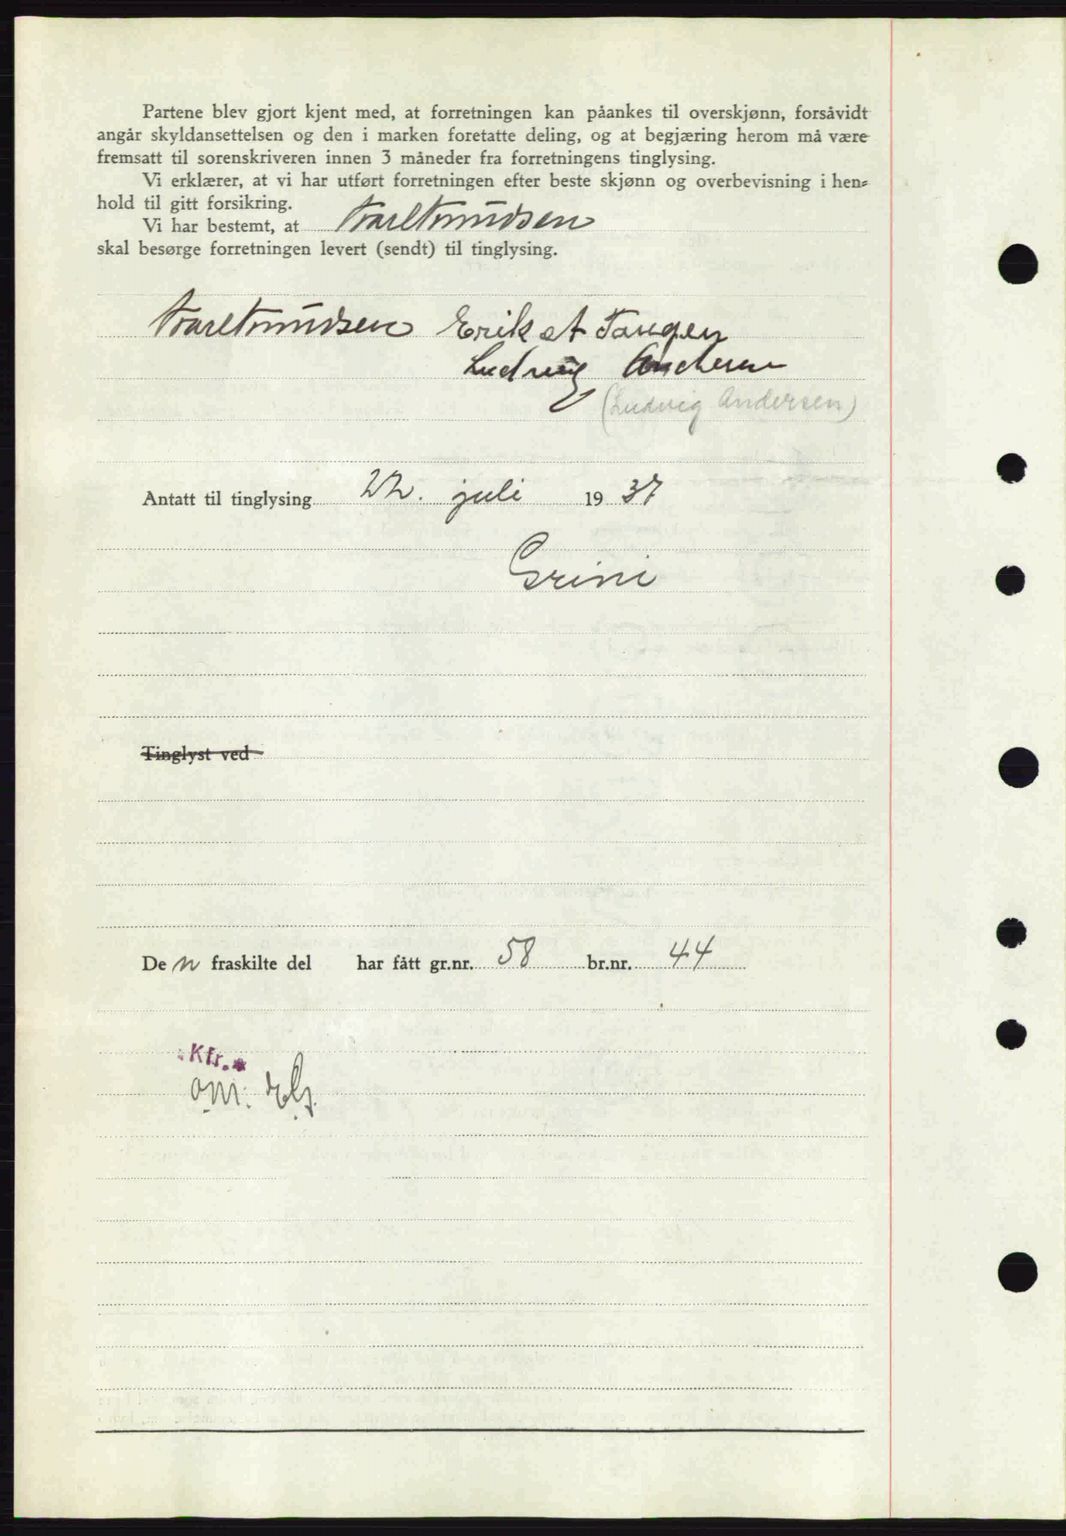 Partene blev gjort kjent med, at forretningen kan påankes til overskjønn, forsåvidt
angår skyldansettelsen og den i marken foretatte deling, og at begjæring herom må være
fremsatt til sorenskriveren innen 3 måneder fra forretningens tinglysing.
Vi erklærer, at vi har utført forretningen efter beste skjønn og overbevisning i hen-
hold til gitt forsikring.
Vi har bestemt, at
skal besørge forretningen levert (sendt) til tinglysing.
Erik A Tangen
Ludvig Andersen
(Ludvig Andersen)
Antatt til tinglysing 22. juli 1937
Grini
Tinglyst ved
Den fraskilte del har fått gr.nr. 58 br.nr. 44
Kfr.